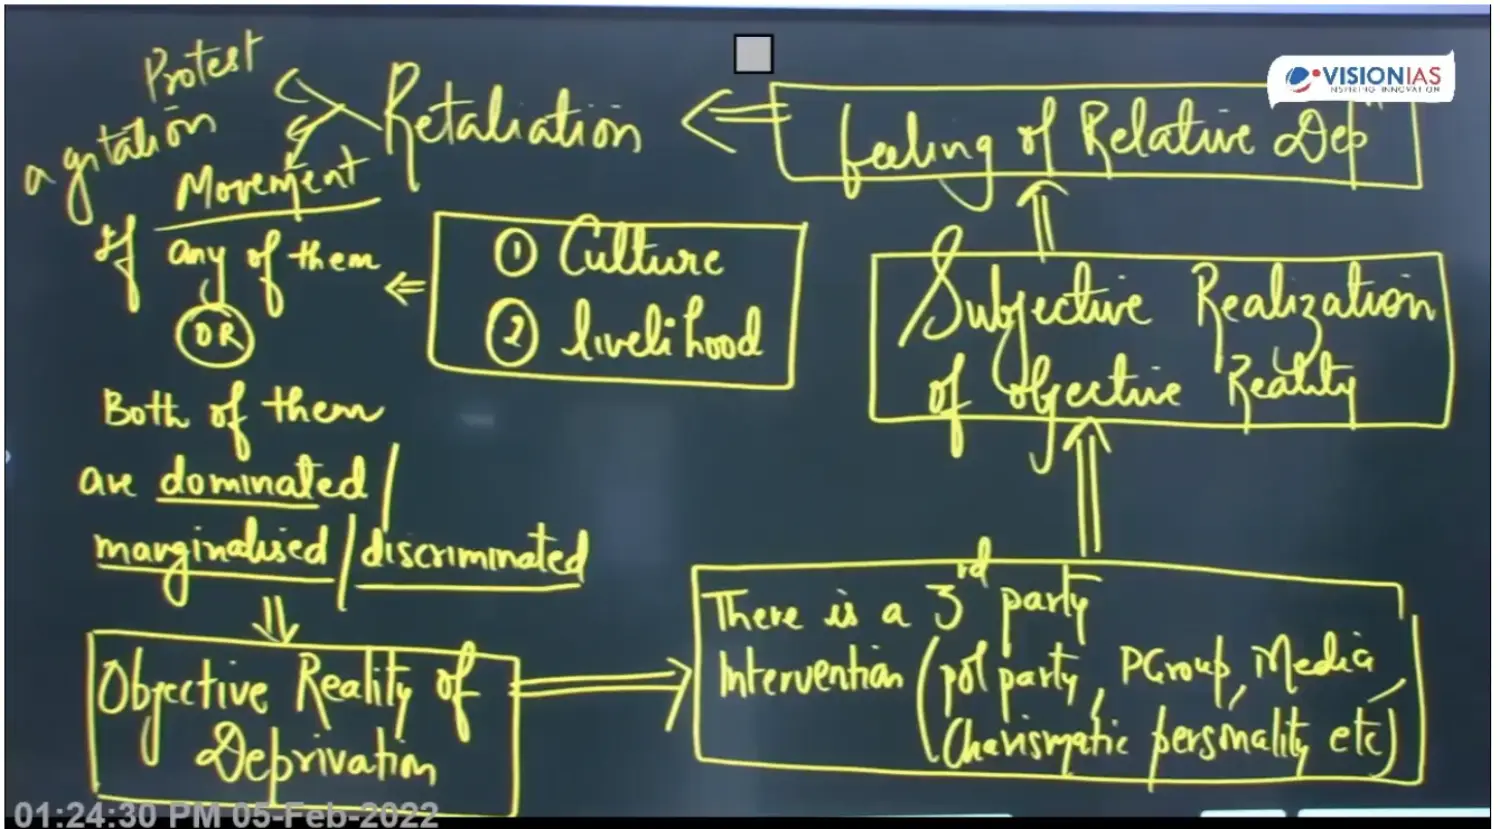 Protest
agitation
Movement
Retaliation
feeling of Relative Depⁿ
VISIONIAS
INSPIRING INNOVATION
If any of them
OR
Both of them
are dominated/
marginalised/discriminated
① Culture
② livelihood
Subjective Realization
of objective Reality
Objective Reality of
Deprivation
There is a 3rd party
Intervention (pol party, PGroup, Media,
Charismatic personality etc)
01:24:30 PM 05-Feb-2022